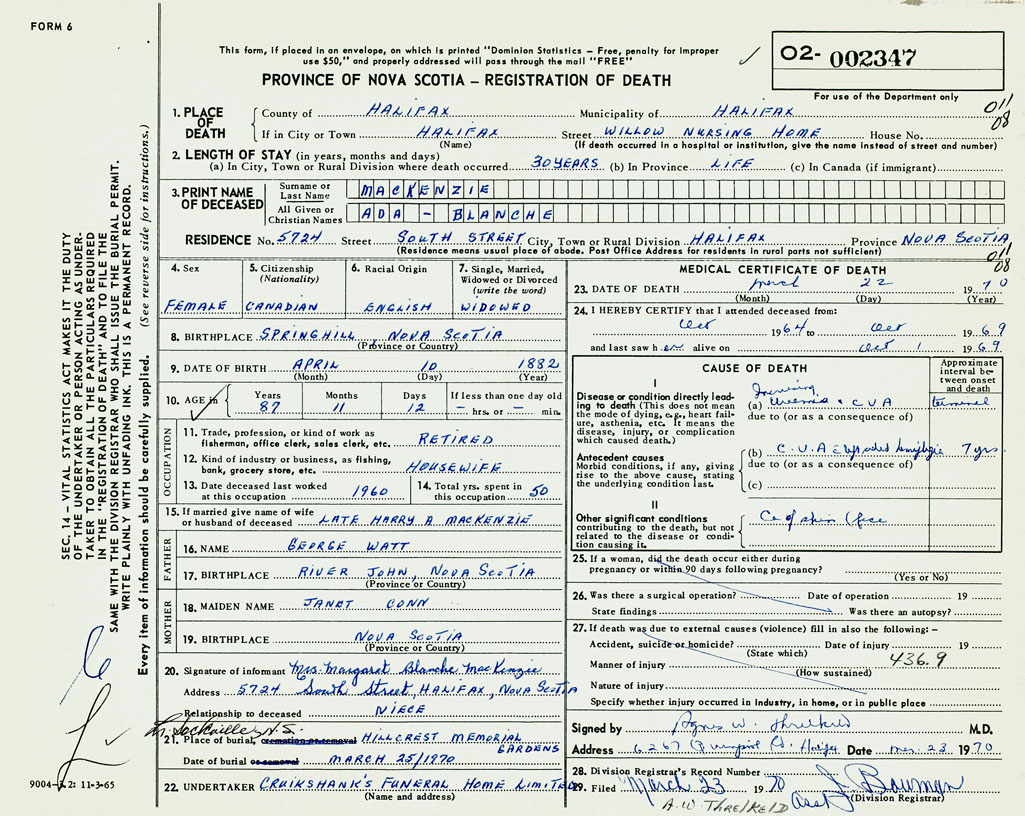 FORM 6
This form, if placed in an envelope, on which is printed "Dominion Statistics – Free, penalty for improper
use $50," and properly addressed will pass through the mail "FREE"
PROVINCE OF NOVA SCOTIA – REGISTRATION OF DEATH
O2- 002347
For use of the Department only
011
08
SEC. 14 – VITAL STATISTICS ACT MAKES IT THE DUTY
OF THE UNDERTAKER OR PERSON ACTING AS UNDER-
TAKER TO OBTAIN ALL THE PARTICULARS REQUIRED
IN THE "REGISTRATION OF DEATH" AND TO FILE THE
SAME WITH THE DIVISION REGISTRAR WHO SHALL ISSUE THE BURIAL PERMIT.
WRITE PLAINLY WITH UNFADING INK. THIS IS A PERMANENT RECORD.
Every item of information should be carefully supplied. (See reverse side for instructions.)
1. PLACE OF DEATH
County of HALIFAX Municipality of HALIFAX
If in City or Town HALIFAX Street WILLOW NURSING HOME House No.
(Name) (If death occurred in a hospital or institution, give the name instead of street and number)
2. LENGTH OF STAY (in years, months and days)
(a) In City, Town or Rural Division where death occurred 30 YEARS (b) In Province LIFE (c) In Canada (if immigrant)
3. PRINT NAME OF DECEASED
Surname or Last Name MACKENZIE
All Given or Christian Names ADA - BLANCHE
RESIDENCE No. 5724 Street SOUTH STREET City, Town or Rural Division HALIFAX Province NOVA SCOTIA
(Residence means usual place of abode. Post Office Address for residents in rural parts not sufficient)
011
08
4. Sex
FEMALE
5. Citizenship (Nationality)
CANADIAN
6. Racial Origin
ENGLISH
7. Single, Married, Widowed or Divorced (write the word)
WIDOWED
8. BIRTHPLACE SPRINGHILL, NOVA SCOTIA
(Province or Country)
9. DATE OF BIRTH APRIL 10 1882
(Month) (Day) (Year)
10. AGE in
Years 87 Months 11 Days 12 If less than one day old – hrs. or – min.
OCCUPATION
11. Trade, profession, or kind of work as fisherman, office clerk, sales clerk, etc. RETIRED
12. Kind of industry or business, as fishing, bank, grocery store, etc. HOUSEWIFE
13. Date deceased last worked at this occupation 1960
14. Total yrs. spent in this occupation 50
15. If married give name of wife or husband of deceased LATE HARRY A MACKENZIE
FATHER
16. NAME GEORGE WATT
17. BIRTHPLACE RIVER JOHN, NOVA SCOTIA
(Province or Country)
MOTHER
18. MAIDEN NAME JANET CONN
19. BIRTHPLACE NOVA SCOTIA
(Province or Country)
20. Signature of informant Mrs. Margaret Blanche MacKenzie
Address 5724 South Street, HALIFAX, NOVA SCOTIA
Relationship to deceased NIECE
Sackville N.S.
21. Place of burial, cremation or removal HILLCREST MEMORIAL GARDENS
Date of burial or removal MARCH 25/1970
22. UNDERTAKER CRUIKSHANK'S FUNERAL HOME LIMITED
(Name and address)
9004-3.2: 11-3-65
MEDICAL CERTIFICATE OF DEATH
23. DATE OF DEATH March 22 1970
(Month) (Day) (Year)
24. I HEREBY CERTIFY that I attended deceased from:
Oct 1964 to Oct 1969
and last saw her alive on Oct 1 1969
CAUSE OF DEATH
Approximate interval between onset and death
I
Disease or condition directly lead-
ing to death (This does not
mean the mode of dying, e.g., heart fail-
ure, asthenia, etc. It means the
disease, injury, or complication
which caused death.)
(a) Increasing Uremia & C.V.A terminal
due to (or as a consequence of)
Antecedent causes
Morbid conditions, if any, giving
rise to the above cause, stating
the underlying condition last.
(b) C.V.A 7 yrs
due to (or as a consequence of)
(c)
II
Other significant conditions
contributing to the death, but not
related to the disease or condi-
tion causing it.
Ca of skin (face
25. If a woman, did the death occur either during
pregnancy or within 90 days following pregnancy?
(Yes or No)
26. Was there a surgical operation? Date of operation 19
State findings Was there an autopsy?
27. If death was due to external causes (violence) fill in also the following: –
Accident, suicide or homicide? Date of injury 19
(State which)
436.9
Manner of injury
(How sustained)
Nature of injury
Specify whether injury occurred in industry, in home, or in public place
Signed by Agnes W. Threlkeld M.D.
Address 6267 Quinpool Rd. Halifax Date Mar. 23 1970
28. Division Registrar's Record Number
29. Filed March 23 1970 J. Bowman
(Division Registrar)
A.W. THRELKELD